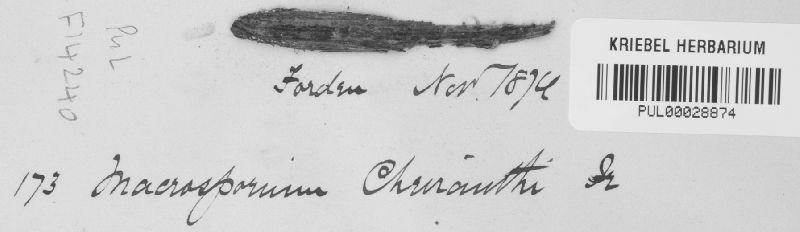 PUL
F14240
KRIEBEL HERBARIUM
PUL00028874
Forden Nov. 1879
173 Macrosporium Cheiranthi Fr